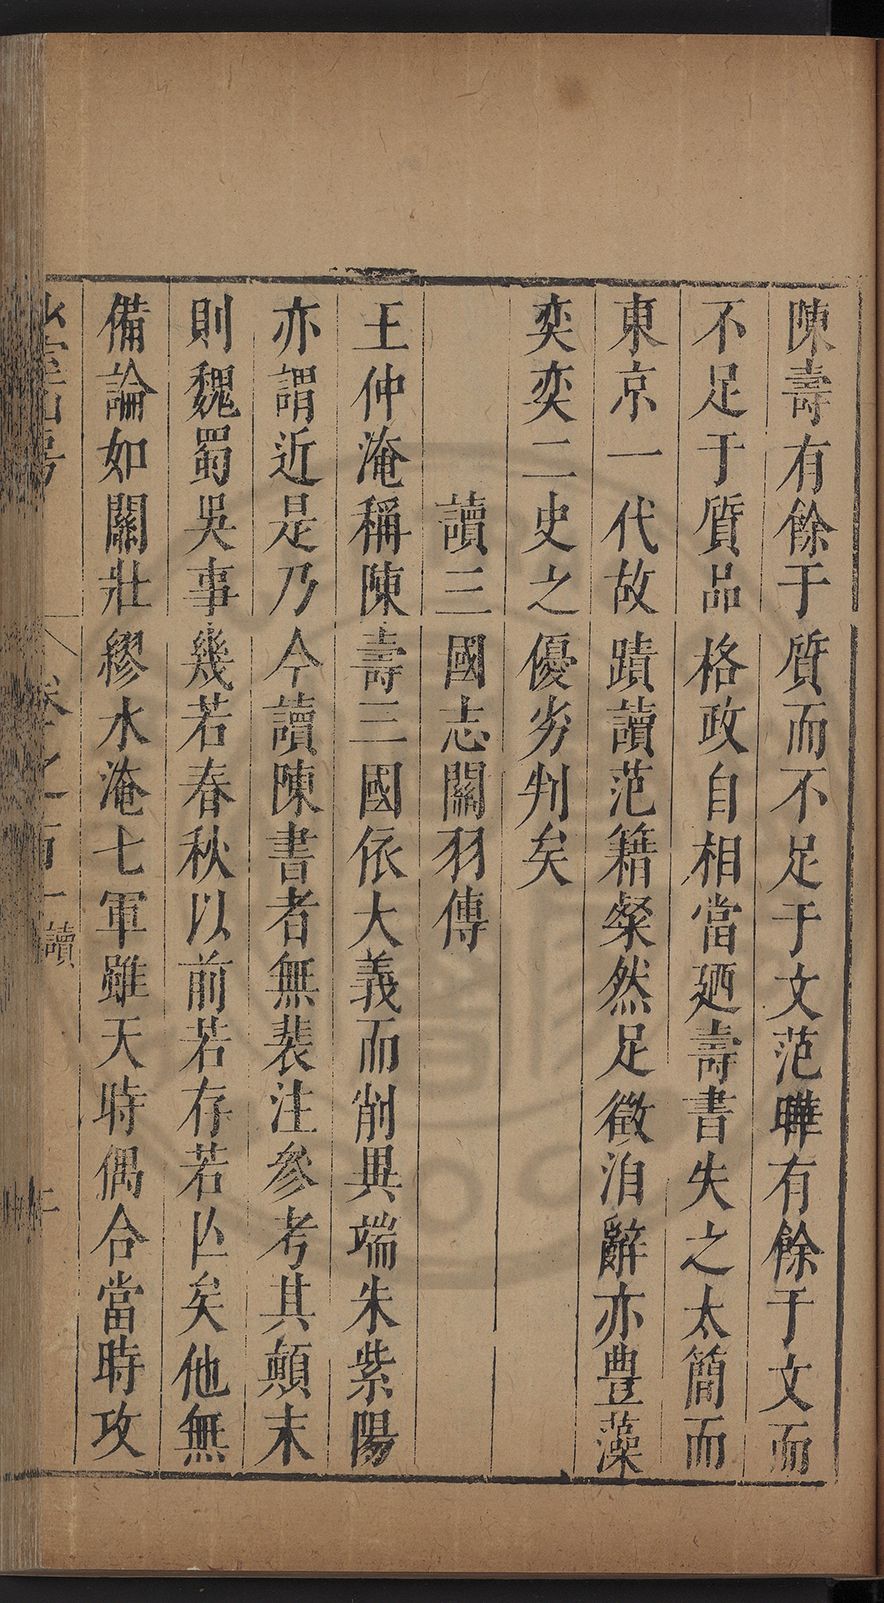 陳壽有餘于質而不足于文范曄有餘于文而
不足于質品格政自相當廼壽書失之太簡而
東京一代故蹟讀范籍粲然足徵洎辭亦豊藻
奕奕二史之優劣判矣
讀三國志關羽傳
王仲淹稱陳壽三國依大義而削異端朱紫陽
亦謂近是乃今讀陳書者無裴注參考其顛末
則魏蜀吳事幾若春秋以前若存若亾矣他無
備論如關壯繆水淹七軍雖天時偶合當時攻
卷之百一 讀